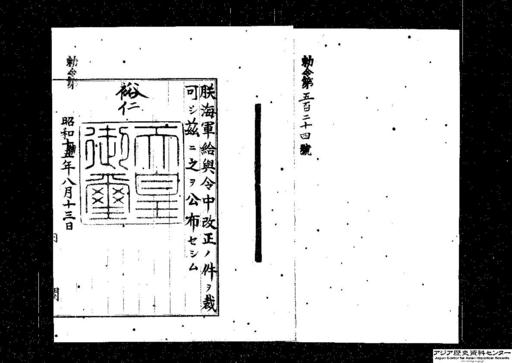 勅令第五百二十四號
朕海軍給與令中改正ノ件ヲ裁
可シ茲ニ之ヲ公布セシム
裕仁
天皇
御璽
昭和十五年八月十三日
勅令第
アジア歴史資料センター
Japan Center for Asian Historical Records